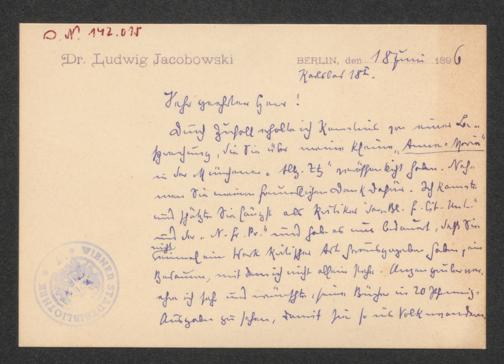 O. N. 142.035
Dr. Ludwig Jacobowski
BERLIN, den 18 Juni 1896
Karlsbad 18I.
Sehr geehrter Herr!
Durch Zufall erhalte ich Kenntnis von einer Be-
sprechung, die Sie über meine kleine „Anne-Marie"
in der Münchener „Allg. Ztg" veröffentlicht haben. Neh-
men Sie meinen freundlichen Dank dafür. Ich kannte
und schätzte Sie längst als Kritiker der Bl. f. lit. Unt."
und der „N. fr. Pr." und habe es nur bedauert, daß Sie
nicht
einmal ein Werk kritischer Art herausgegeben haben, ein
Bedauern, mit dem ich nicht allein stehe.
ich sah und wünschte, seine Bücher in 20 Pfennig-
Ausgaben zu sehen, damit sie so ins Volk wandern
WIENER STADTBIBLIOTHEK